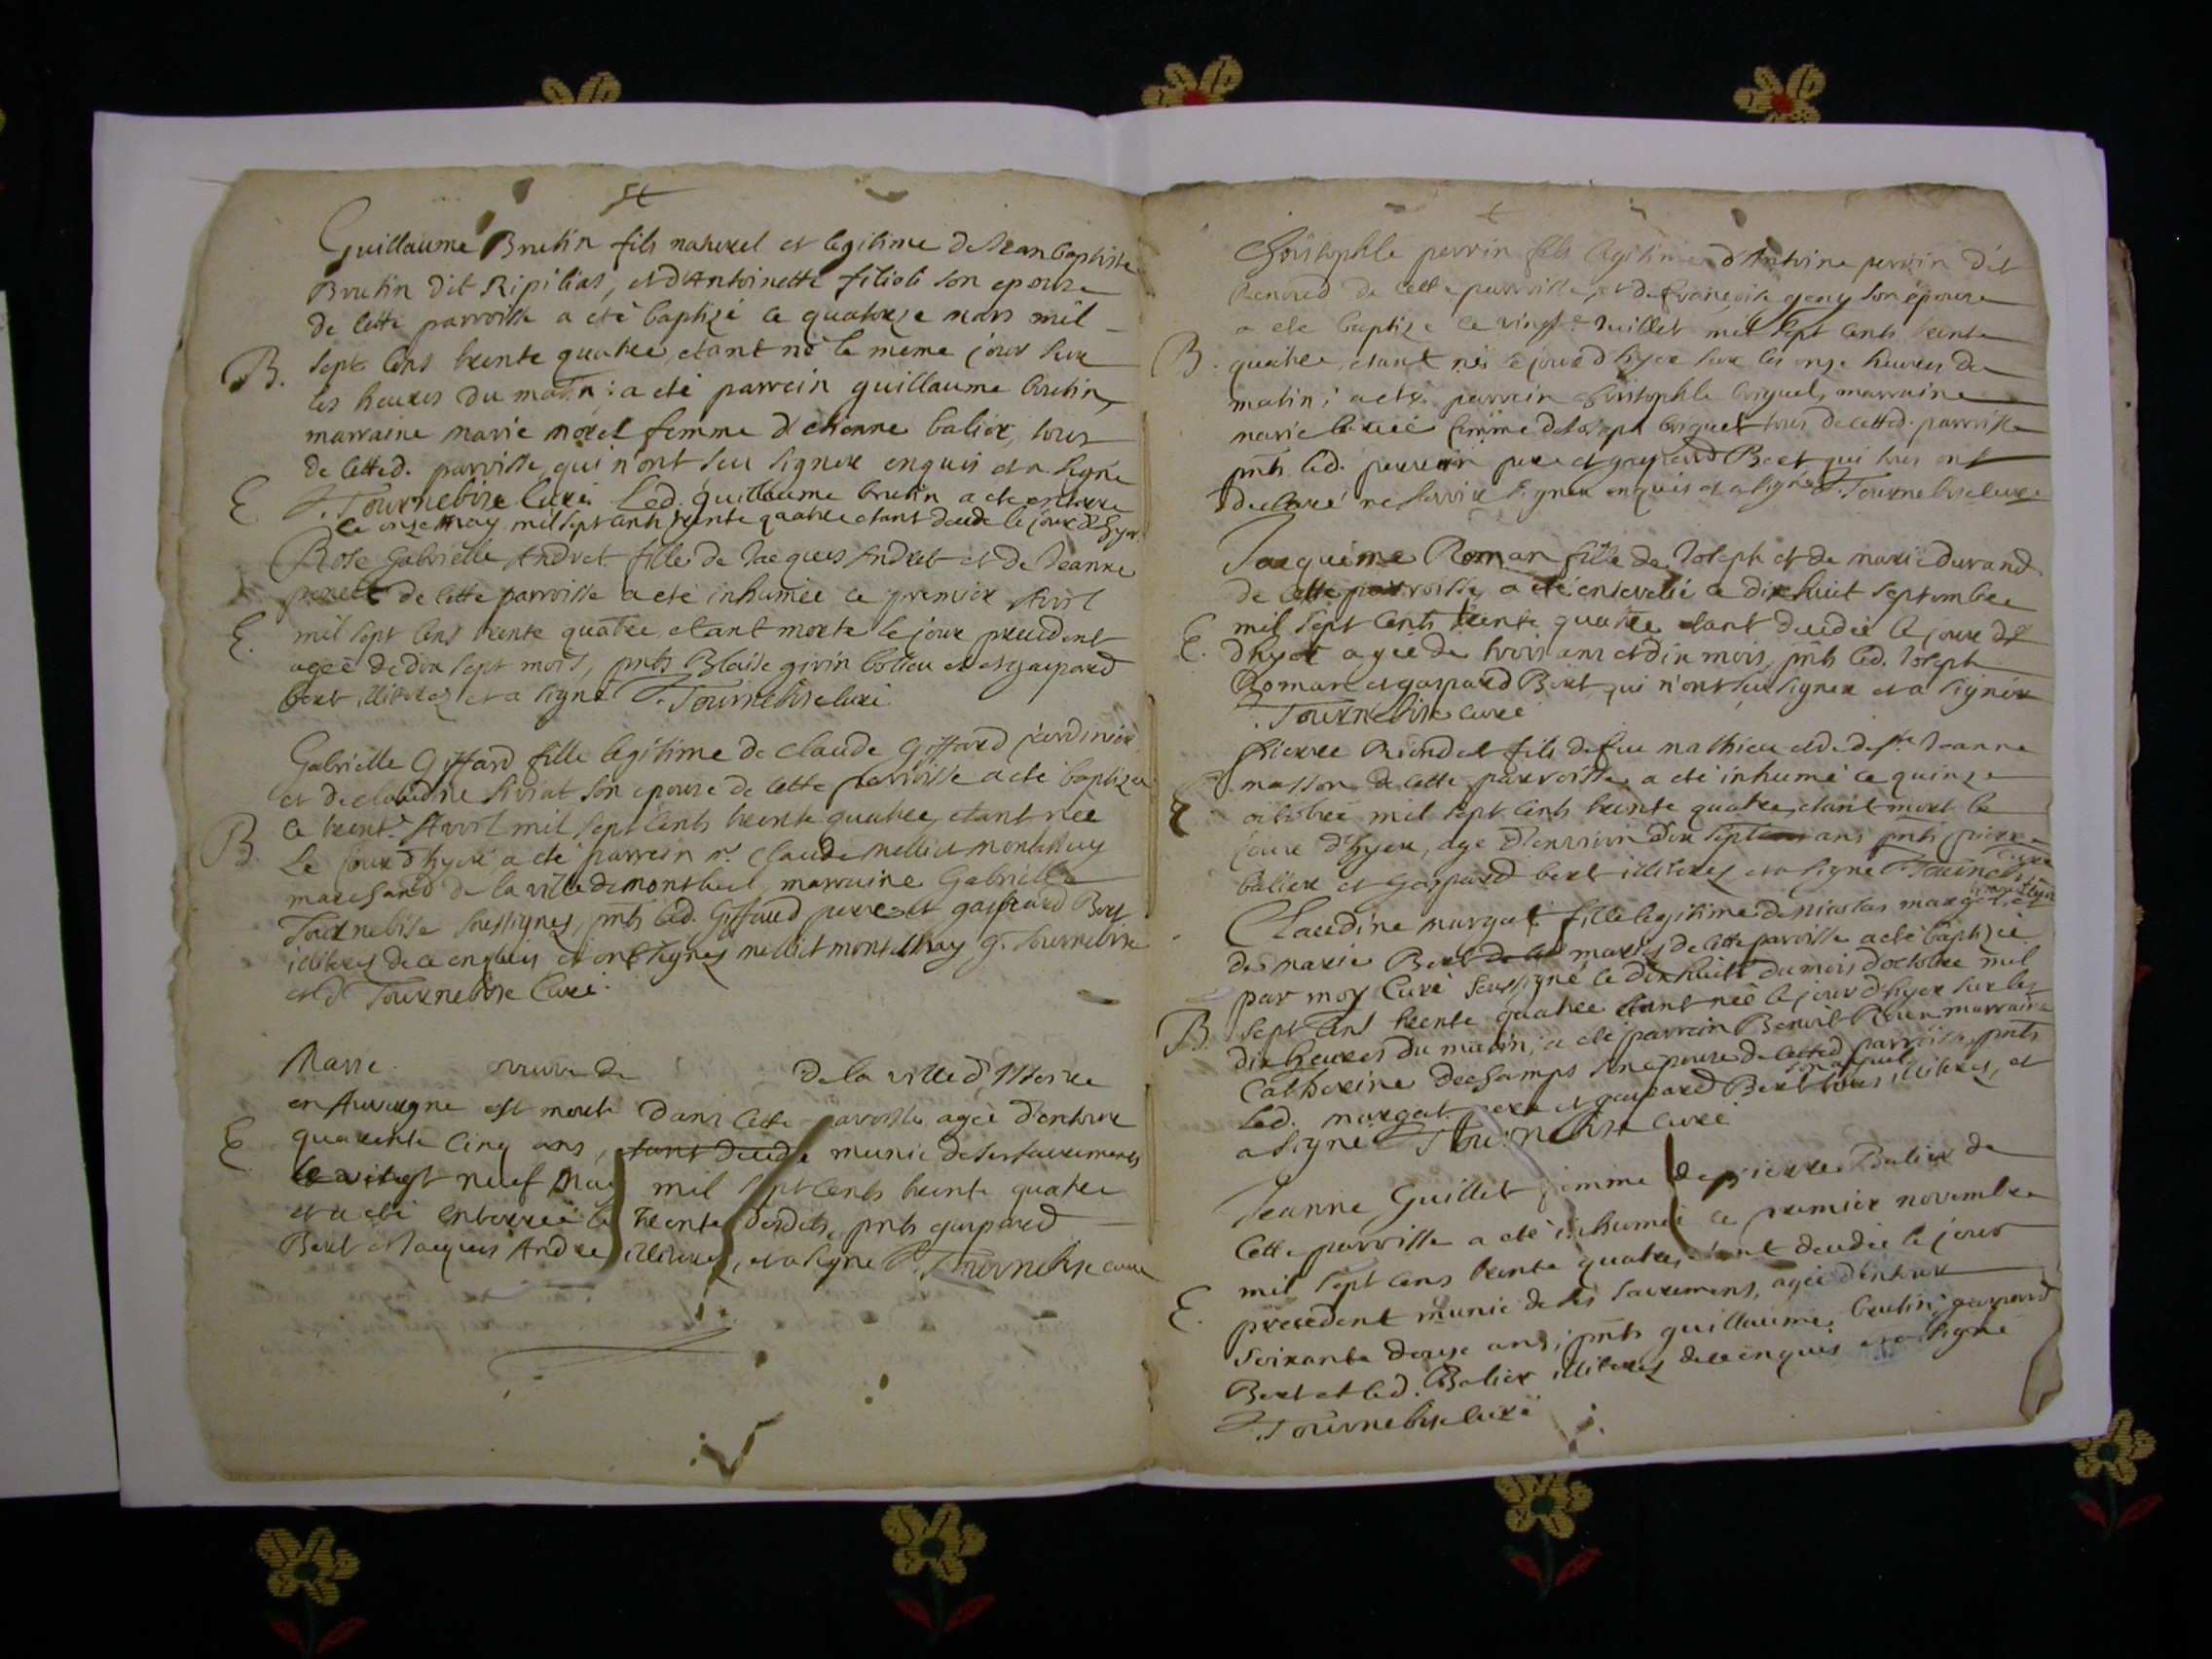 Guillaume Brutin fils naturel et legitime de Jean baptiste
Brutin dit Ripilias, et d'Antoinette filioli son epouse
de cette parroisse a eté baptizé ce quatorze mars mil
B. sept cens trente quatre, etant né le meme jour sur
les heures du matin: a eté parrein guillaume brutin,
marraine marie morel femme d'etienne balier, tous
de cetted. parroisse, qui n'ont sceu signer enquis et a signé
E J. Tournebise curé. Led. guillaume brutin a eté enterré
ce onze may mil sept cents trente quatre etant decedé le jour d'hyer.
Rose Gabrielle Andret fille de Jacques Andret et de Jeanne
de cette parroisse a eté inhumée ce premier Avril
E. mil sept cens trente quatre etant morte le jour precedent
agée de dix sept mois, pnts Blaise givin et gaspard
bert illiterez et a signé J. Tournebise curé
Gabrielle Giffard fille legitime de claude Giffard jardinier
et de claudine son epouse de cette parroisse a eté baptizée
B. ce trent.e Avril mil sept cents trente quatre, etant née
Le jour d'hyer, a eté parrein sr. Claude Mellict montchuy
marchand de la ville de montluel, marraine Gabrielle
Tournebise soussignez, pnts led. Giffard pere et gaspard Bert
illiterez de ce enquis et ont signez mellict montchuy G. Tournebise
et J. Tournebise Curé.
Marie veuve de de la ville d'Issoire
en Auvergne est morte dans cette parroisse agée d'environ
E quarente cinq ans, etant decedé munie de ses sacrements
le vingt neuf May mil sept cents trente quatre
et a eté enterrée le trente dudit, pnts gaspard
Bert et Jacques Andre illiterez, et a signé J. Tournebise curé
Christophle perrin fils legitime d'Antoine perrin dit
Renoud de cette parroisse, et de françoise geny son epouse
a eté baptizé ce vingt.e Juillet mil sept cents trente
B. quatre, etant né le jour d'hyer sur les onze heures du
matin; a eté parrein Christophle borquet, marraine
marie femme de Joseph borquet tous de cetted. parroisse
pnts led. perrin pere et gaspard Bert qui tous ont
declaré ne sçavoir signer enquis et a signé J. Tournebise curé
Jacqueme Roman fille de Joseph et de marie durand
de cette parroisse, a eté ensevelie ce dix huit septembre
mil sept cents trente quatre etant decedée le jour d
E. d'hyer agée de trois ans et dix mois, pnts led. Joseph
Roman et gaspard Bert, qui n'ont sceu signer et a signér
J. Tournebise curé
Pierre Riondet fils de feu mathieu et de def.te Jeanne
masson de cette parroisse a eté inhumé ce quinze
E octobre mil sept cents trente quatre, etant mort le
jour d'hyer, age d'environ dix sept ans pnts pierre
balier et Gaspard bert illiterez et a signé J. Tournebise curé
Claudine margat fille legitime de nicolas margat
de marie Bert mariés de cette parroisse a eté baptizée
par moy Curé soussigné le dix huit du mois d'octobre mil
B. sept cens trente quatre etant née le jour d'hyer sur les
dix heures du matin, a eté parrein Benoit marraine
Catherine dechamps son epouse de cetted. parroisse, pnts
Led. margat pere et gaspard Bert tous illiterez, et
a signé J. Tournebise curé
Jeanne Guillet femme de pierre Balier de
cette parroisse a eté inhumée ce premier novembre
mil sept cens trente quatre, etant decedée le jour
E. precedent munie de ses sacremens, agée d'environ
soixante douze ans; pnts guillaume brutin, gaspard
Bert et led. Balier illiterez de ce enquis et a signé
J. Tournebise curé